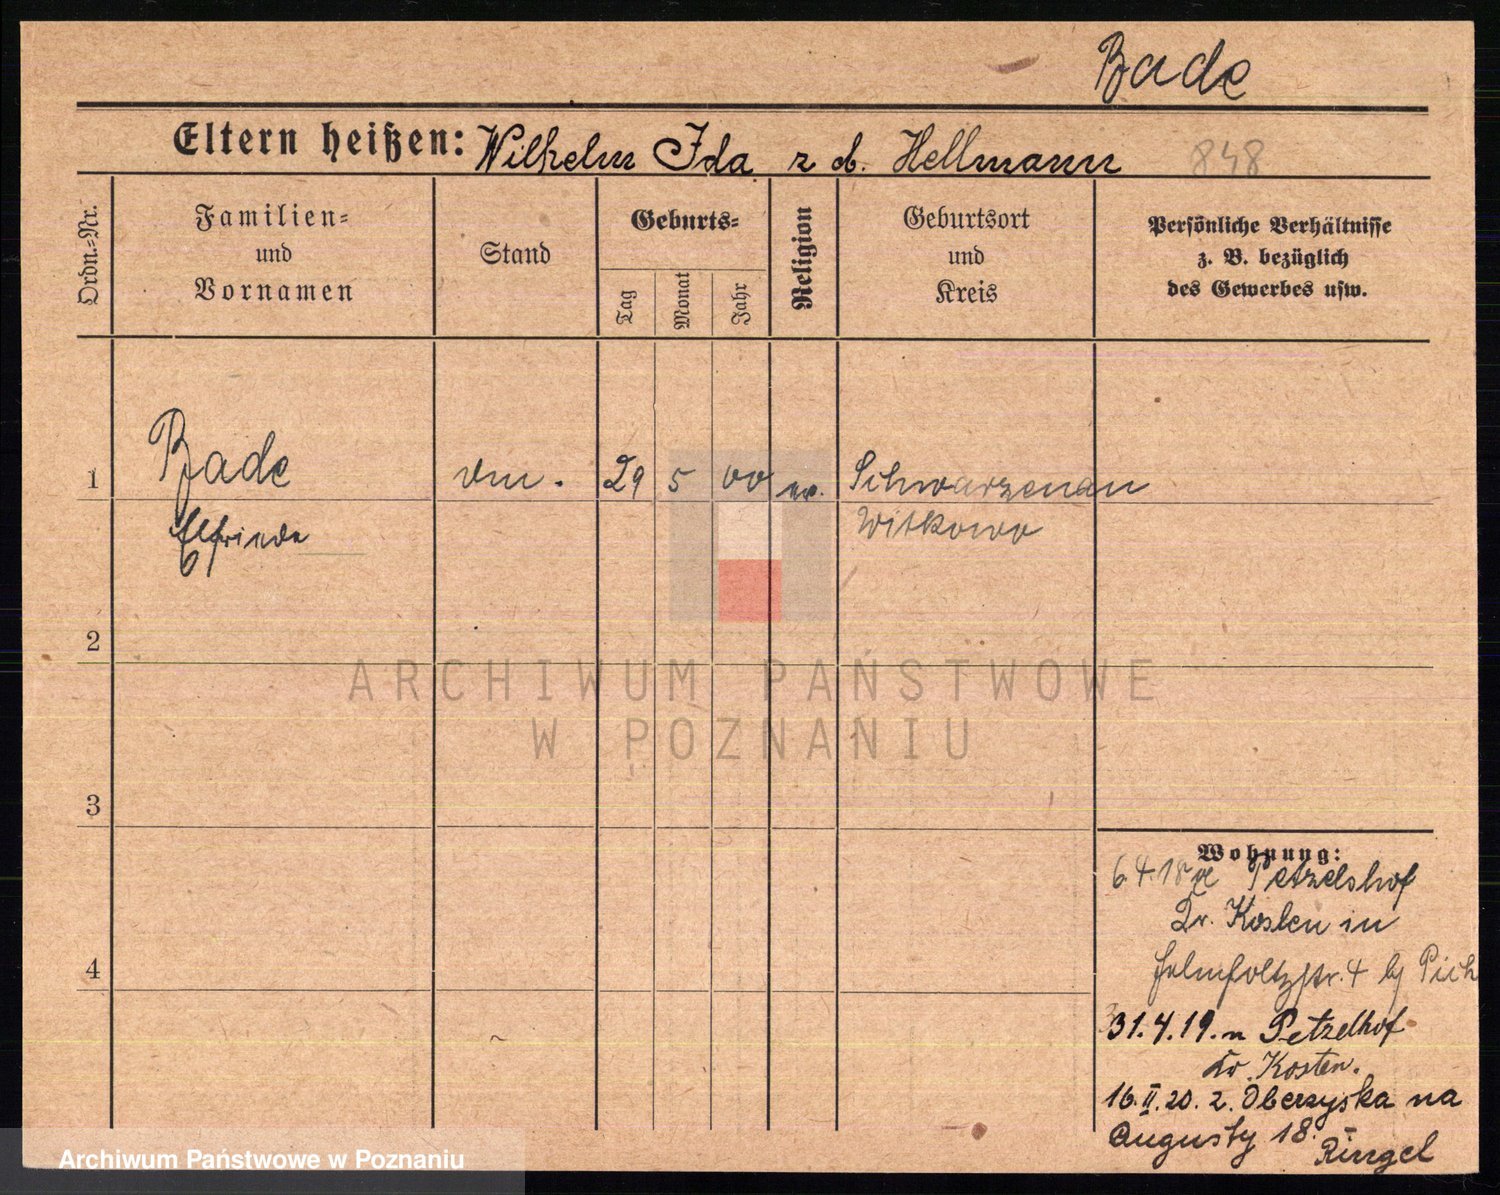 Bade
Eltern heißen: Wilhelm Ida z d. Hellmann 848
Ordn.=Nr.
Familien=
und
Vornamen
Stand
Geburts=
Tag
Monat
Jahr
Religion
Geburtsort
und
Kreis
Persönliche Verhältnisse
z. B. bezüglich
des Gewerbes usw.
1 Bade 29 5 00 ev. Schwarzenau
Elfriede Witkowo
2
ARCHIWUM PAŃSTWOWE
W POZNANIU
3
4
Wohnung:
6.4.18 Petzelshof
Kr. Kosten in
Helmholtzstr. 4 bj
31.4.19. n Petzelhof
Kr. Kosten.
16.II.20. z. Oberzyska na
Augusty 18.
Ringel
Archiwum Państwowe w Poznaniu